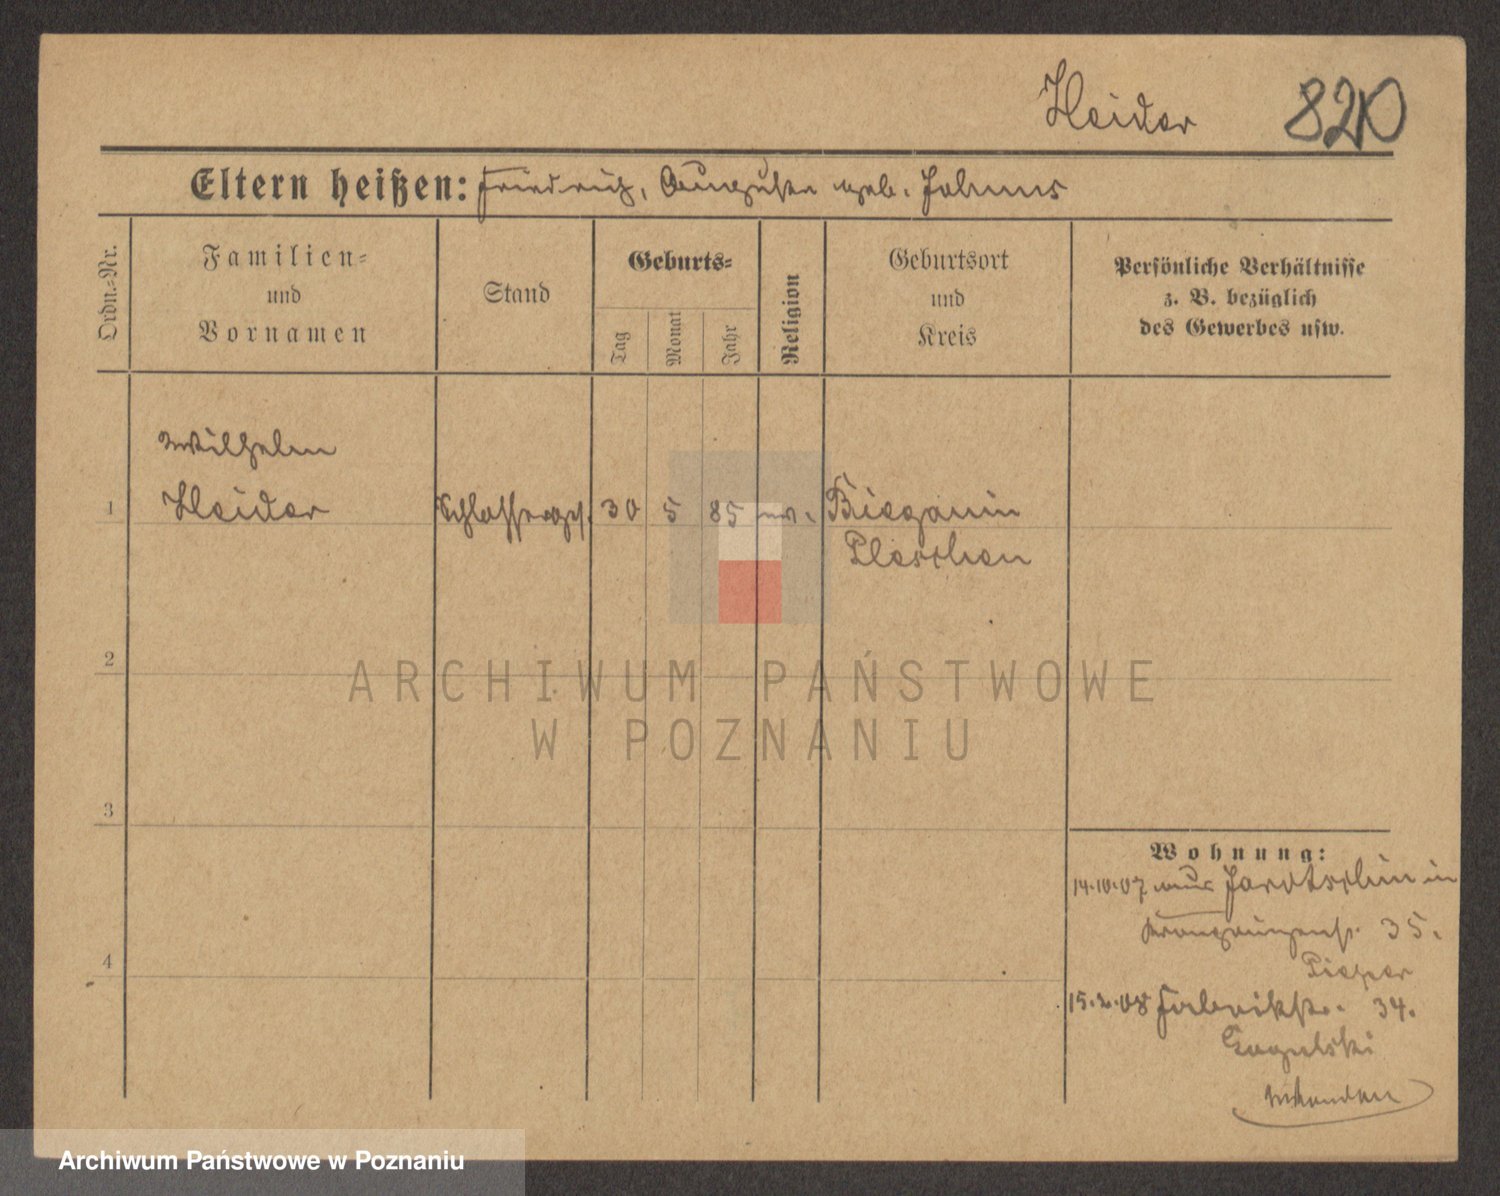 Heider 820
Eltern heißen: Friedrich, Auguste geb. Johns
Ordn.-Nr.
Familien-
und
Vornamen
Stand
Geburts-
Tag
Monat
Jahr
Religion
Geburtsort
und
Kreis
Persönliche Verhältnisse
z. B. bezüglich
des Gewerbes usw.
Wilhelm
1 Heider Schlosserges. 30 5 85 ev. Bieganin
Pleschen
2
ARCHIWUM PAŃSTWOWE
W POZNANIU
3
Wohnung:
14.10.07 aus Jarotschin in
35.
4
Pieper
15.2.08 Fabrikstr. 34.
Gogulski
Archiwum Państwowe w Poznaniu